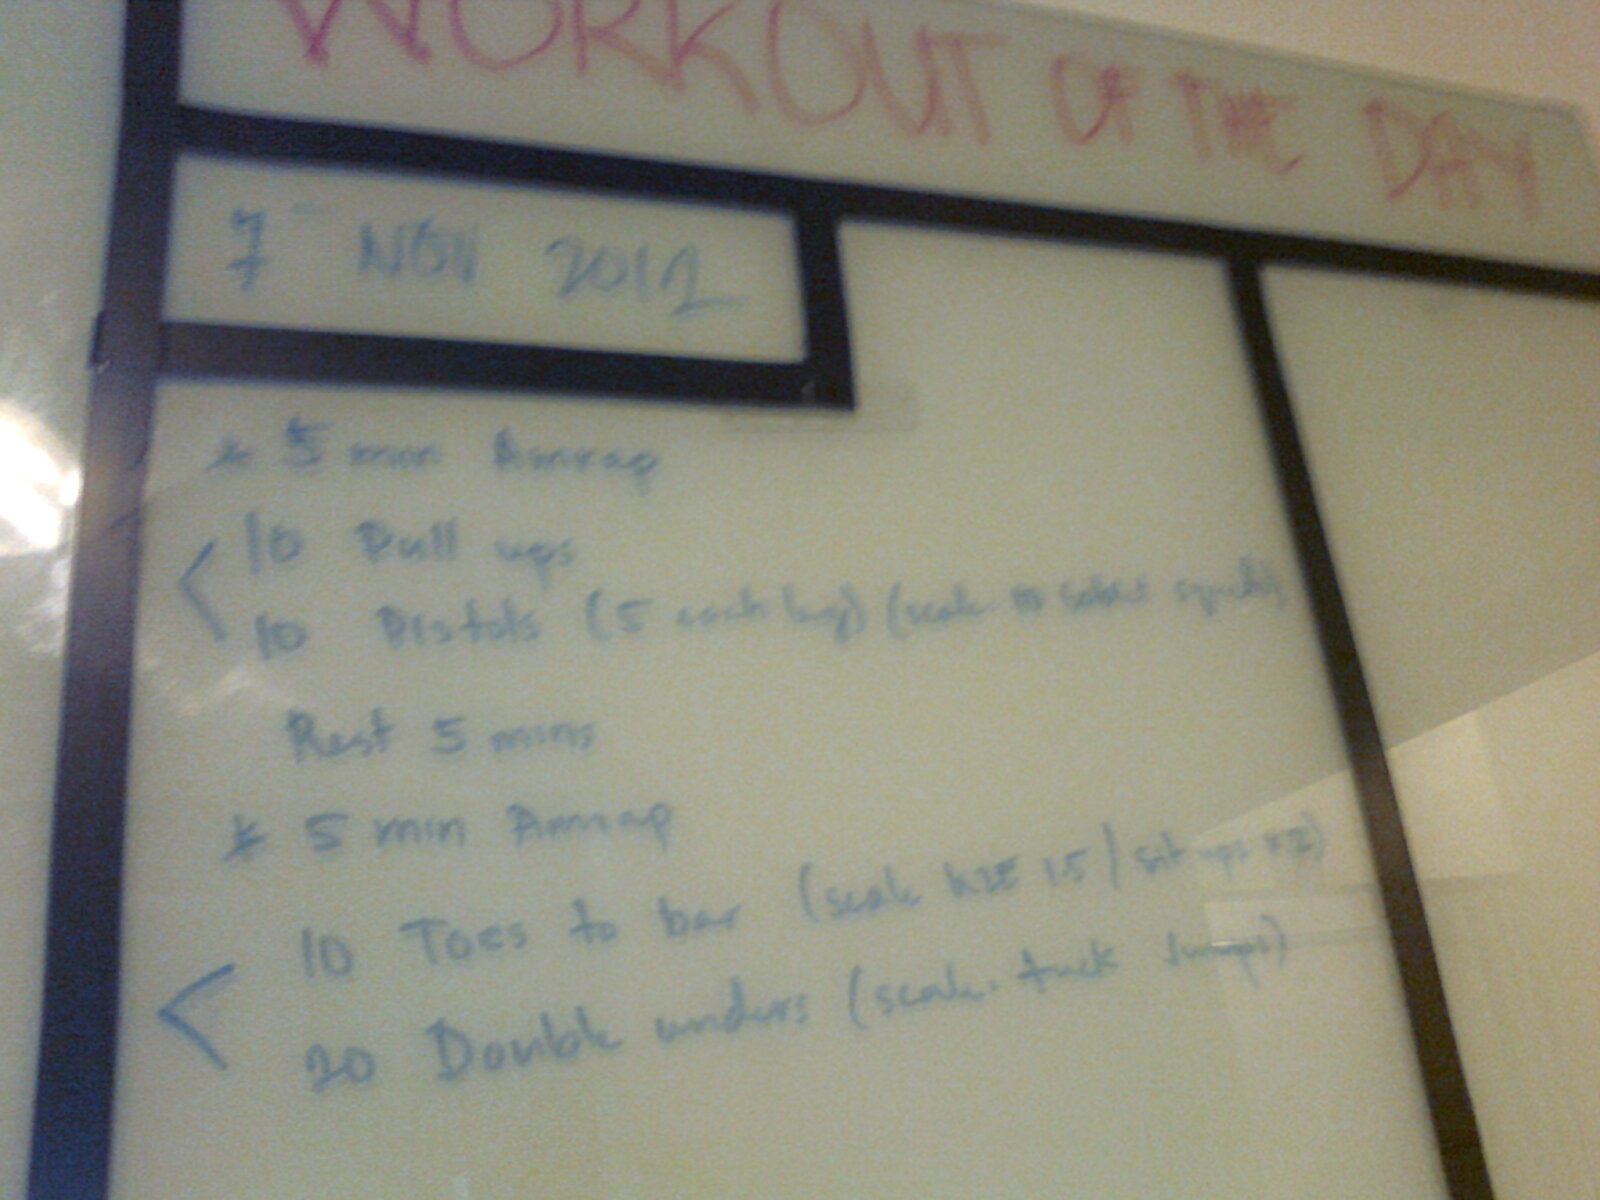 WORKOUT OF THE DAY
7 NOV 2012
* 5 min Amrap
10 Pull ups
10 Pistols (5 each leg) (scale
Rest 5 mins
* 5 min Amrap
10 Toes to bar (scale K2E 15 / sit ups x2)
20 Double unders (scale. tuck Jumps)